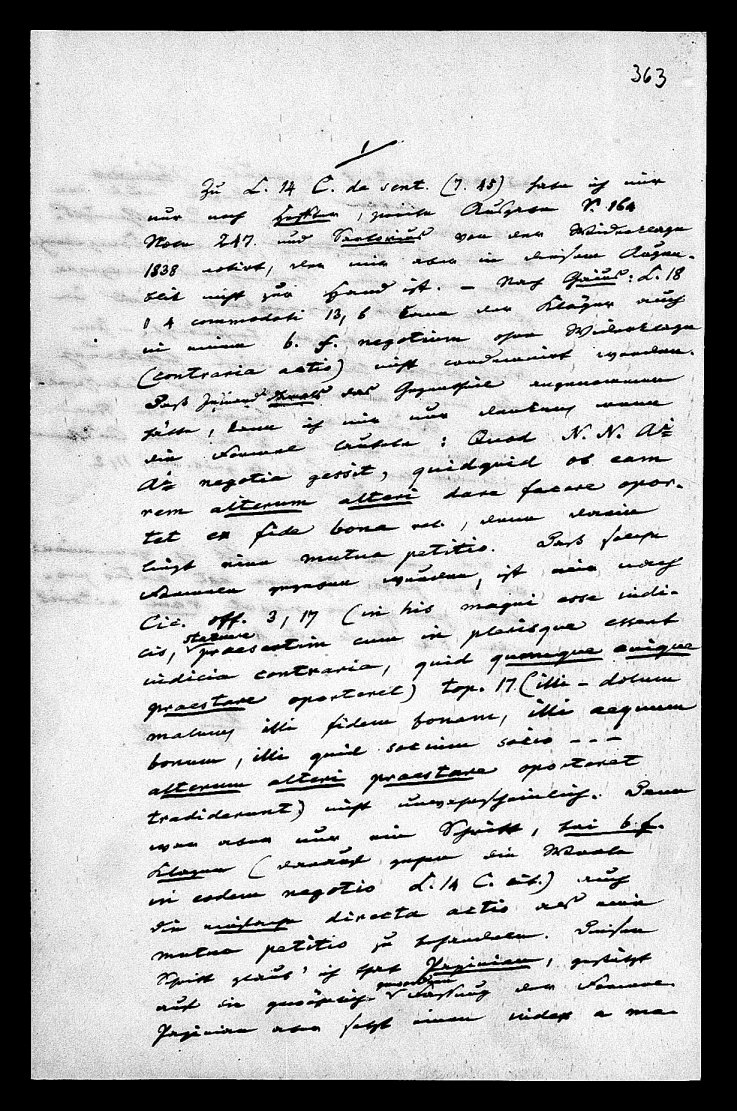 363
1
Zu L. 14 C. de sent. (7. 45) habe ich mir
nur noch Heffter, zweite Ausgabe N. 164
Note 247. und Sartorius von der Widerklage
1838 notirt, der mir aber in diesem Augen-
zeit nicht zur Hand ist. – Nach Gaius: L. 18
§ 4 commodati 13, 6 kann der Kläger auch
in einem b. f. negotium ohne Widerklage
(contraria actio) nicht condemnirt werden.
Daß Jemand das Gegentheil angenommen
hätte, kann ich mir nur denken, wenn
die Formel lautete: Quod N. N. A°
A° negotia gessit, quidquid ob eam
rem alterum alteri dare facere opor-
tet ex fide bona rel., denn darin
liegt eine mutua petitio. Daß solche
Formeln gegeben wurden, ist mir nach
Cic. off. 3, 17 (in his, magni esse iudi-
cis, statuere praesertim cum in plerisque essent
iudicia contraria, quid quemque cuique
praestare oporteret) top. 17 (illi – dolum
malum, illi fidem bonam, illi aequum
bonum, illi quid socium socio - - -
alterum alteri praestare oporteret
tradiderunt) nicht unwahrscheinlich. Dann
war aber nur ein Schritt, bei b. f.
Klagen (darauf gehen die Worte
in eodem negotio L. 14 C. cit.) auch
die einfache directa actio als eine
mutua petitio zu behandeln. Diesen
Schritt glaub' ich that Papinian, gestützt
auf die gewöhnliche Fassung der Formel.
Papinian aber setzt einen iudex a ma-